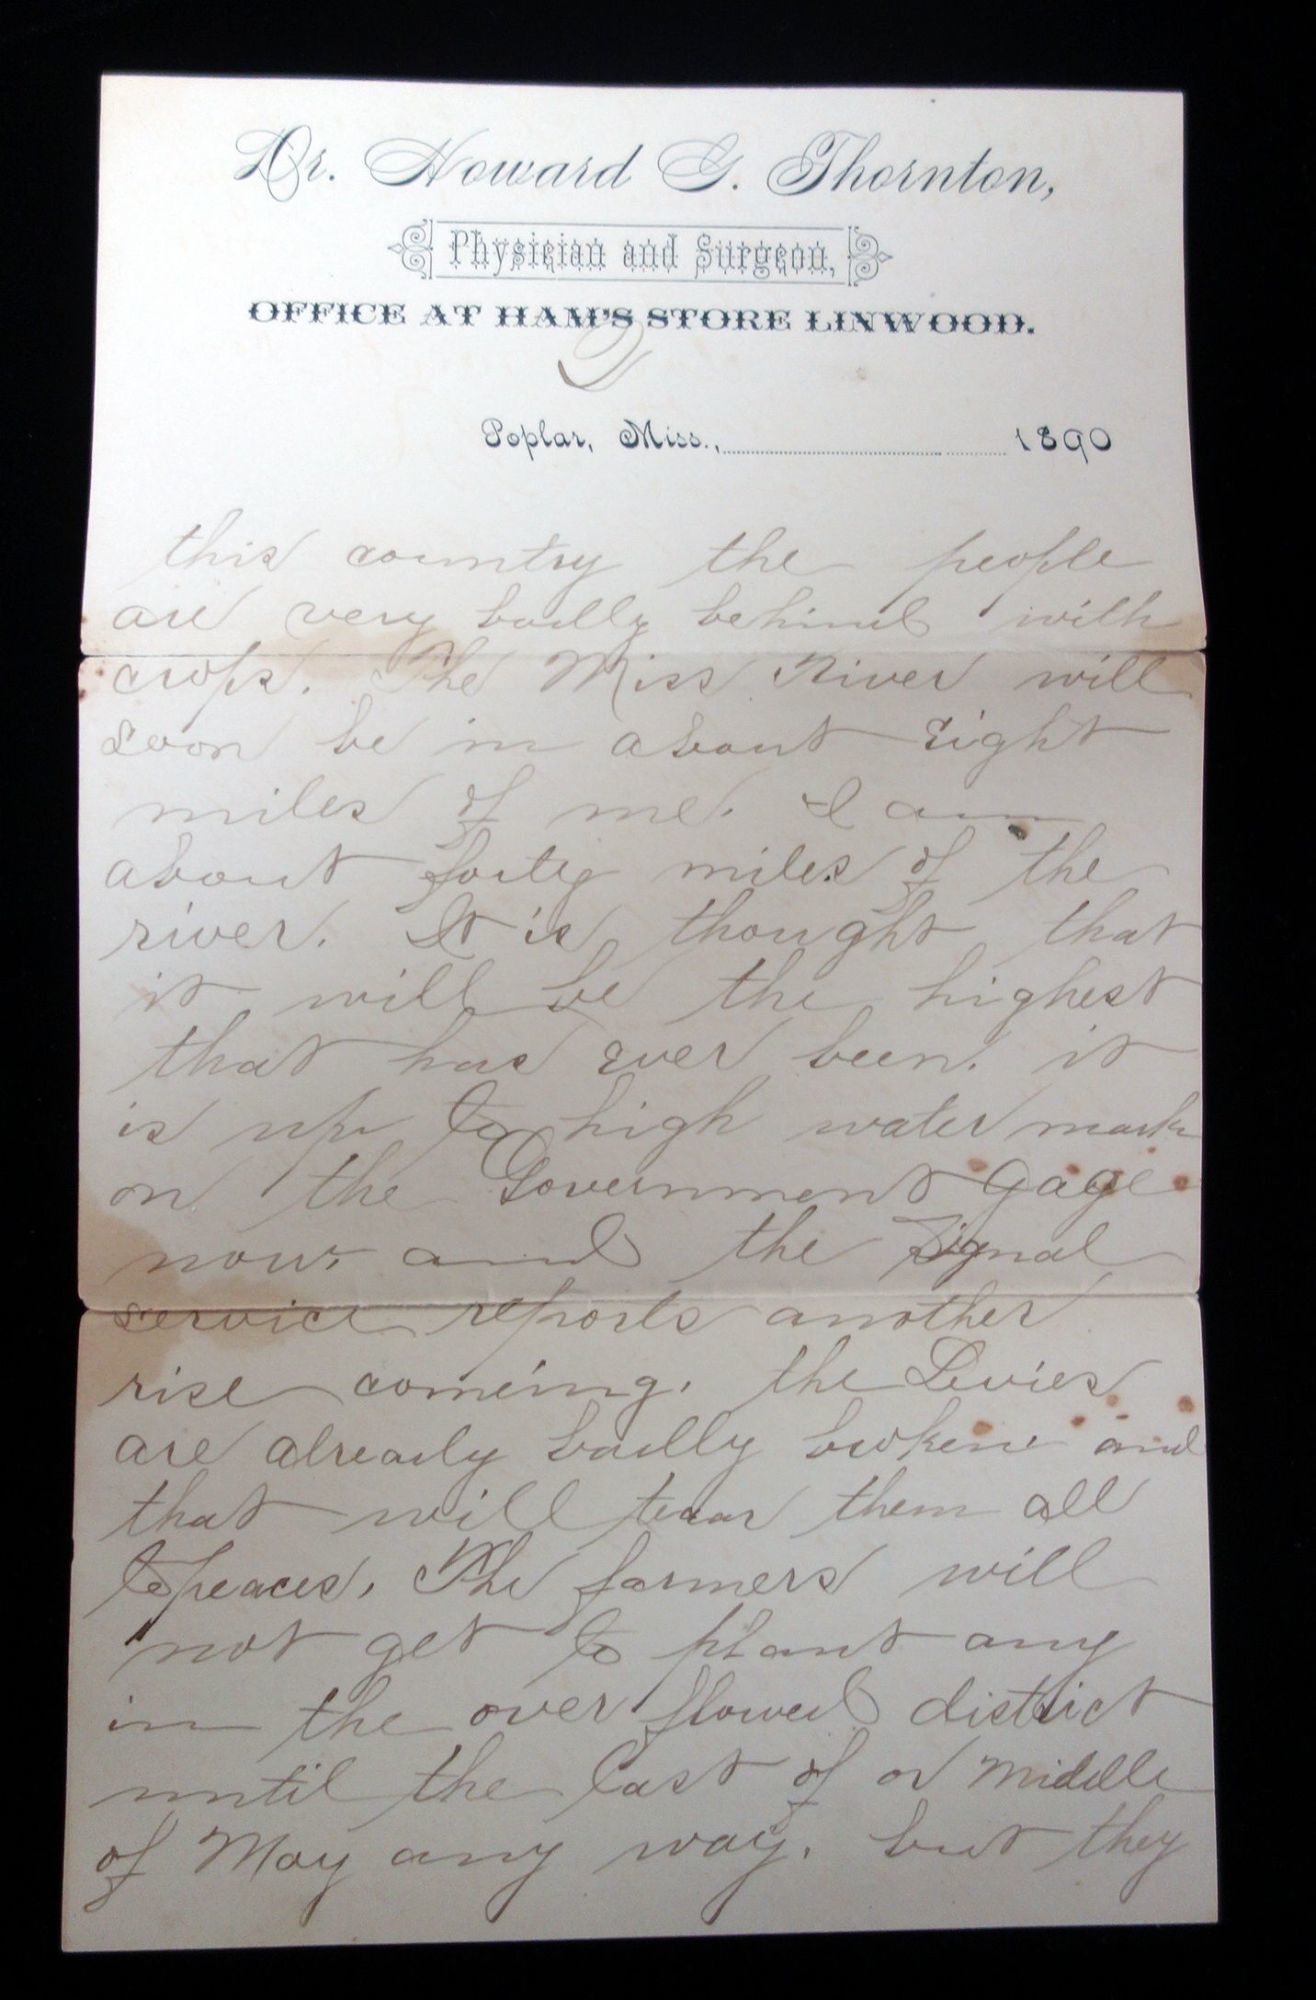 Dr. Howard G. Thornton,
Physician and Surgeon,
OFFICE AT HAM'S STORE LINWOOD.
2
Poplar, Miss., 1890
this country the people
are very badly behind with
crops. The Miss River will
soon be in about eight
miles of me. I am
about forty miles of the
river. It is thought that
it will be the highest
that has ever been. it
is up to high water mark
on the Government gage
now. and the Signal
service reports another
rise comeing. the Levies
are already badly broken and
that will tear them all
to peaces. The farmers will
not get to plant any
in the over flowed district
until the last of or middle
of May any way. but they